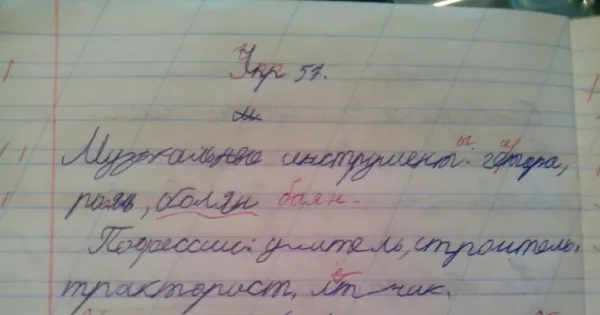 Упр 57.
Музыкальные инструменты: гитара,
рояль, боян баян.
Професcии: учитель, строитель,
тракторист, летчик.